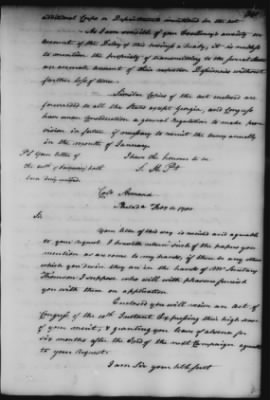 additional Corps or Departments mentioned in the act
As I am sensible of your Excellency's anxiety on
account of the Delay of this business already, it is needless
to mention the propriety of transmitting to the several States
an accurate amount of their respective Deficiencies without
further loss of time.
Similar Copies of the act enclosed are
forwarded to all the States except Georgia, and Congress
have under Consideration a general Regulation to make pro-
vision in future if necessary to recruit the army annually
in the month of January.
PS Your letter of
the have been duly received.
I have the honour to be
S. H. Pt
Coll Armand
Philada Feby 1780
Sir
Your letter of this way is received and agreeable
to your Request I herewith return such of the papers you
mention as are come to my hands, if there be any other
which you desire they are in the hands of Mr Secretary
Thomson I suppose who will with pleasure furnish
you with them on application
Enclosed you will receive an Act of
Congress of the 10th Instant Expressing their high sense
of your merit, & granting you leave of absence for
six months after the End of the next Campaign agreeable
to your Request.
I am Sir your